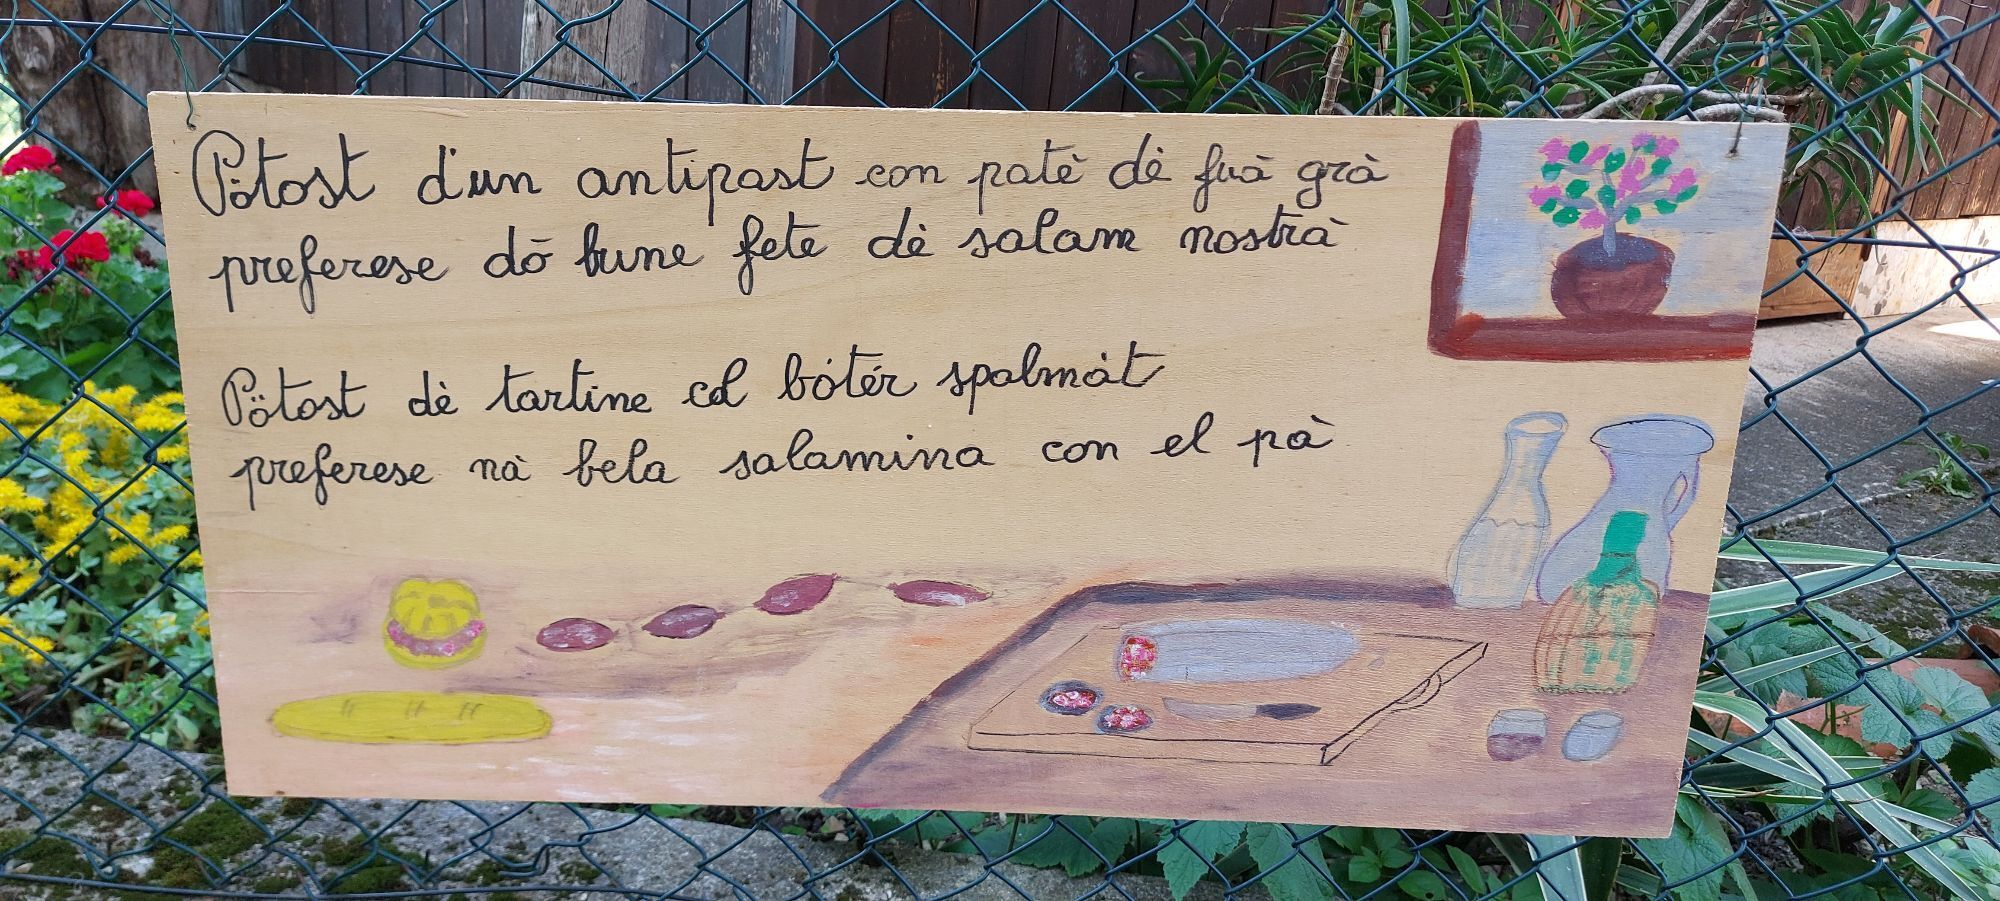 Pötost d'un antipast con patè dè fuà grà
preferese dō bune fete dè salam nostrà
Pötost dè tartine col bótér spalmàt
preferese nà bela salamina con el pà